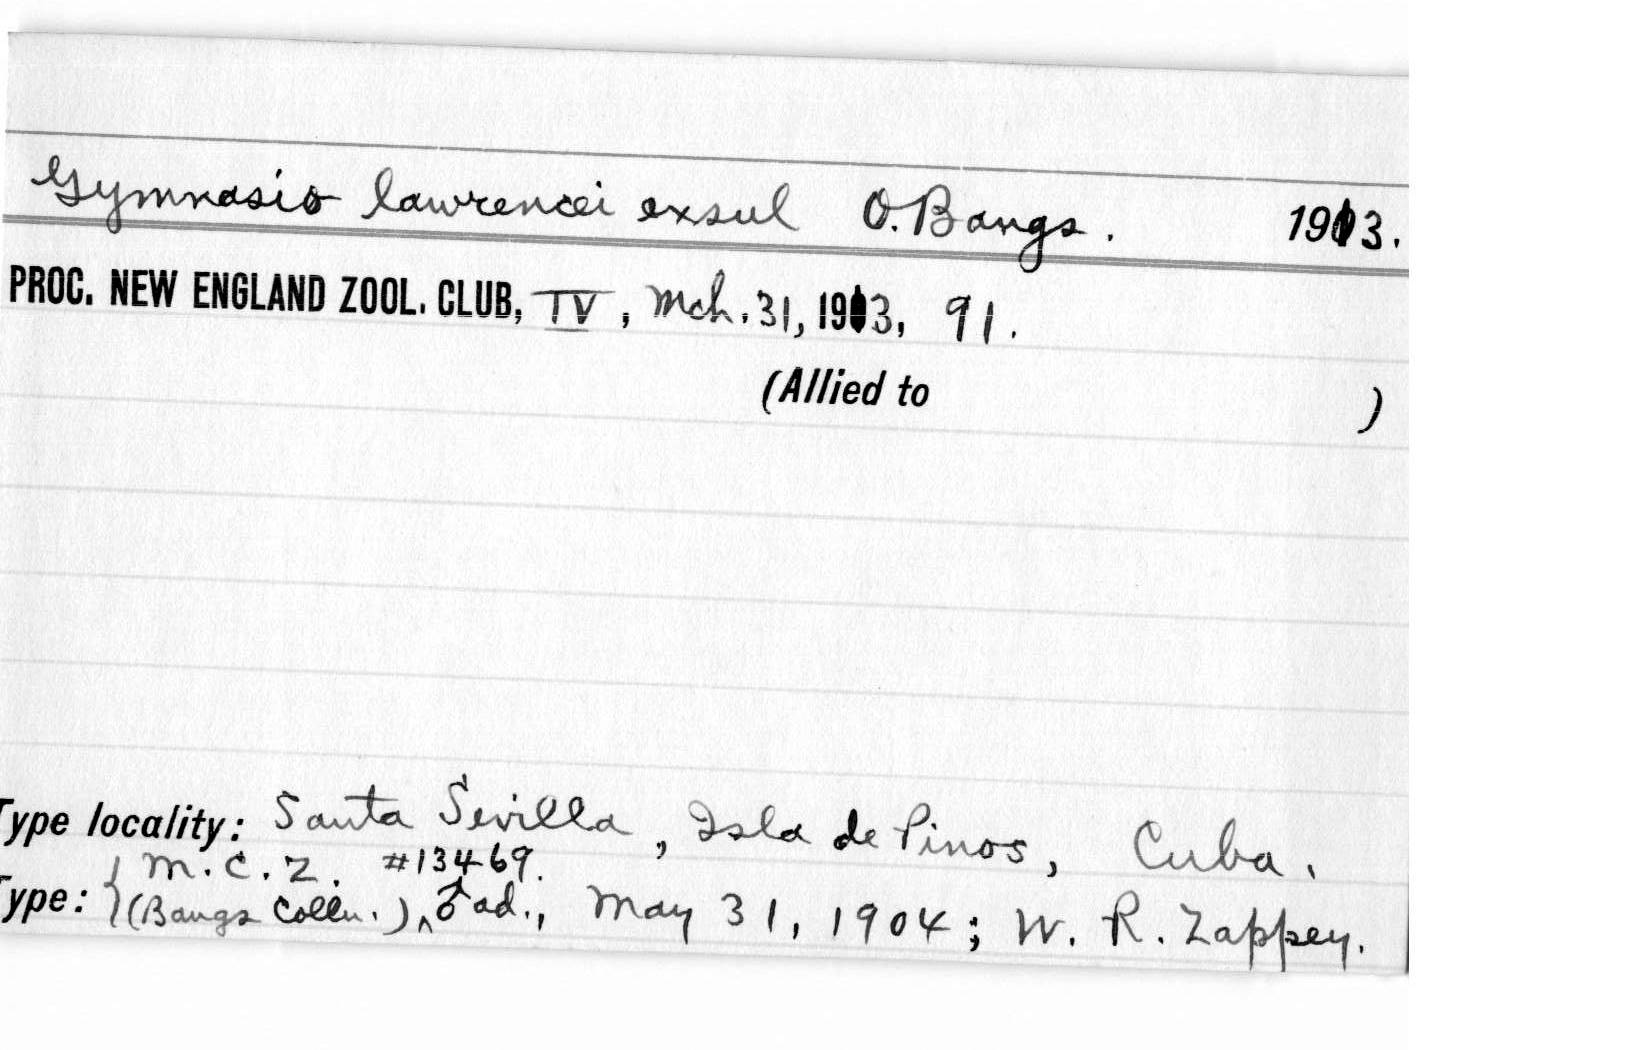 Gymnasio lawrencei exsul O. Bangs. 1913.
PROC. NEW ENGLAND ZOOL. CLUB, IV, Mch. 31, 1913, 91.
(Allied to )
Type locality: Santa Sevilla, Isla de Pinos, Cuba.
M.C.Z. #13469.
Type: (Bangs Colln.) ‸ ♂ ad., May 31, 1904; W. R. Zappey.